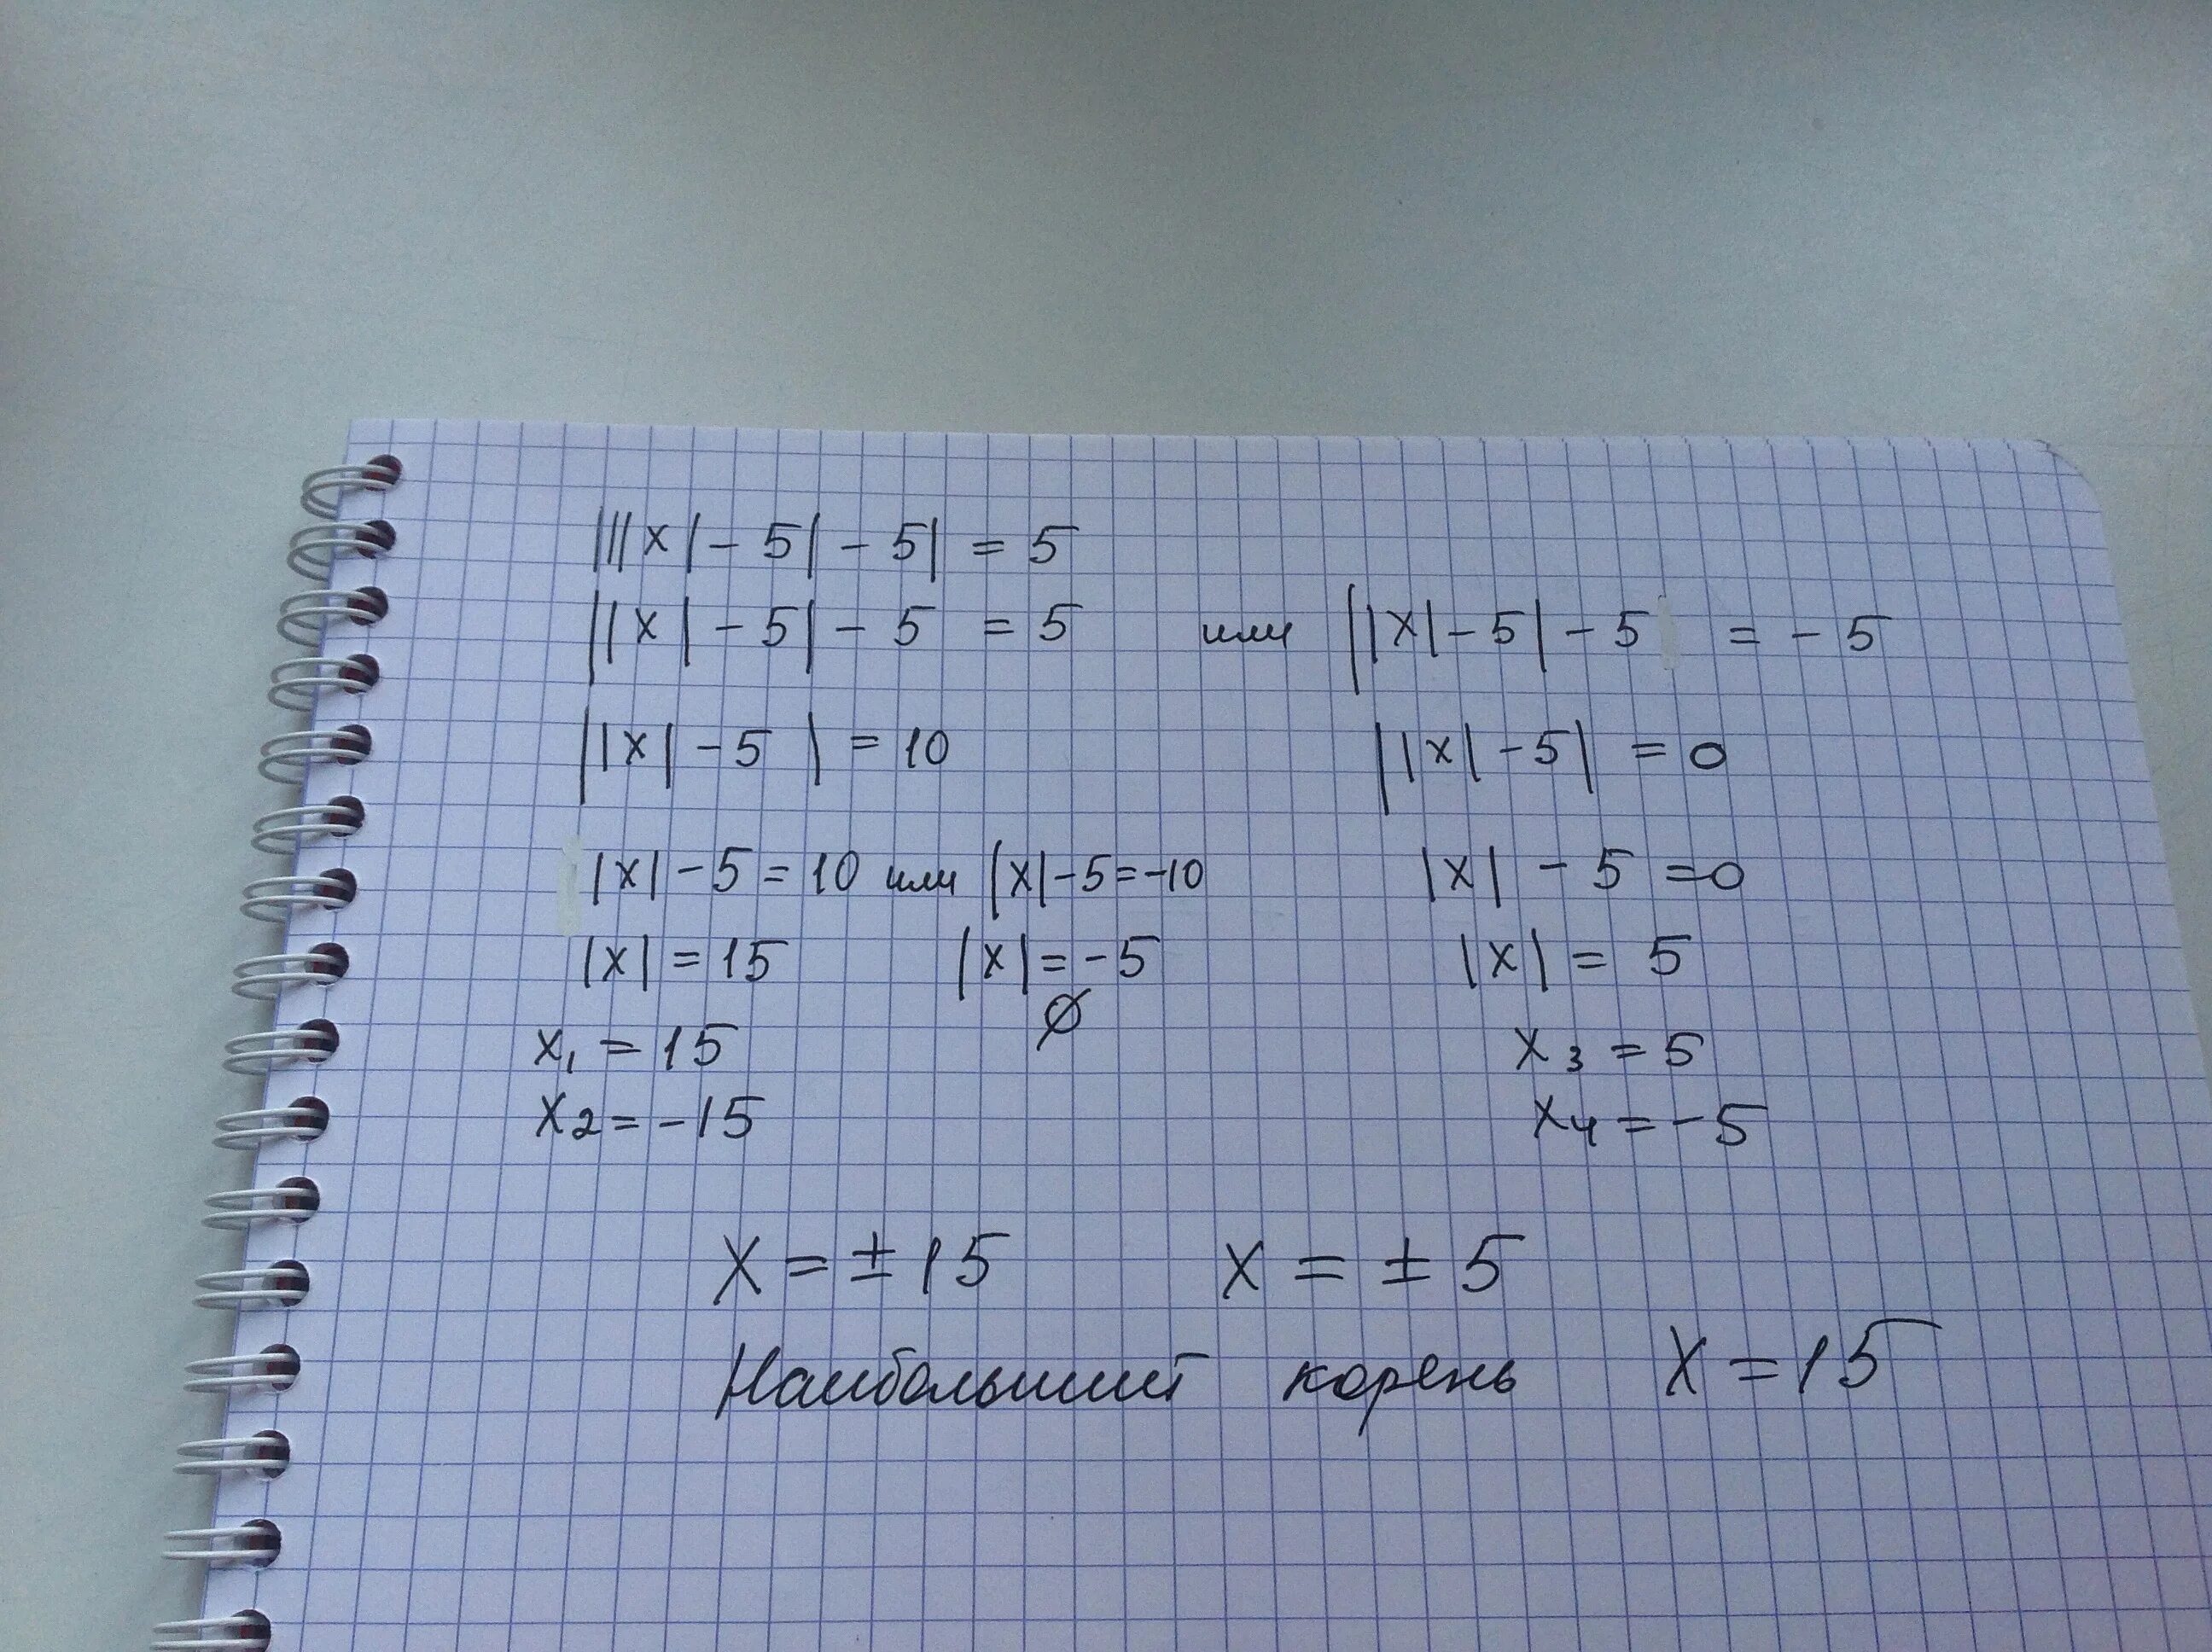 |||x| - 5| - 5| = 5
||x| - 5| - 5 = 5 или ||x| - 5| - 5 = - 5
||x| - 5 | = 10 ||x| - 5| = 0
|x| - 5 = 10 или |x| - 5 = -10 |x| - 5 = 0
|x| = 15 |x| = - 5 |x| = 5
∅
x₁ = 15 x₃ = 5
x₂ = - 15 x₄ = - 5
x = ± 15 x = ± 5
Наибольший корень x = 15